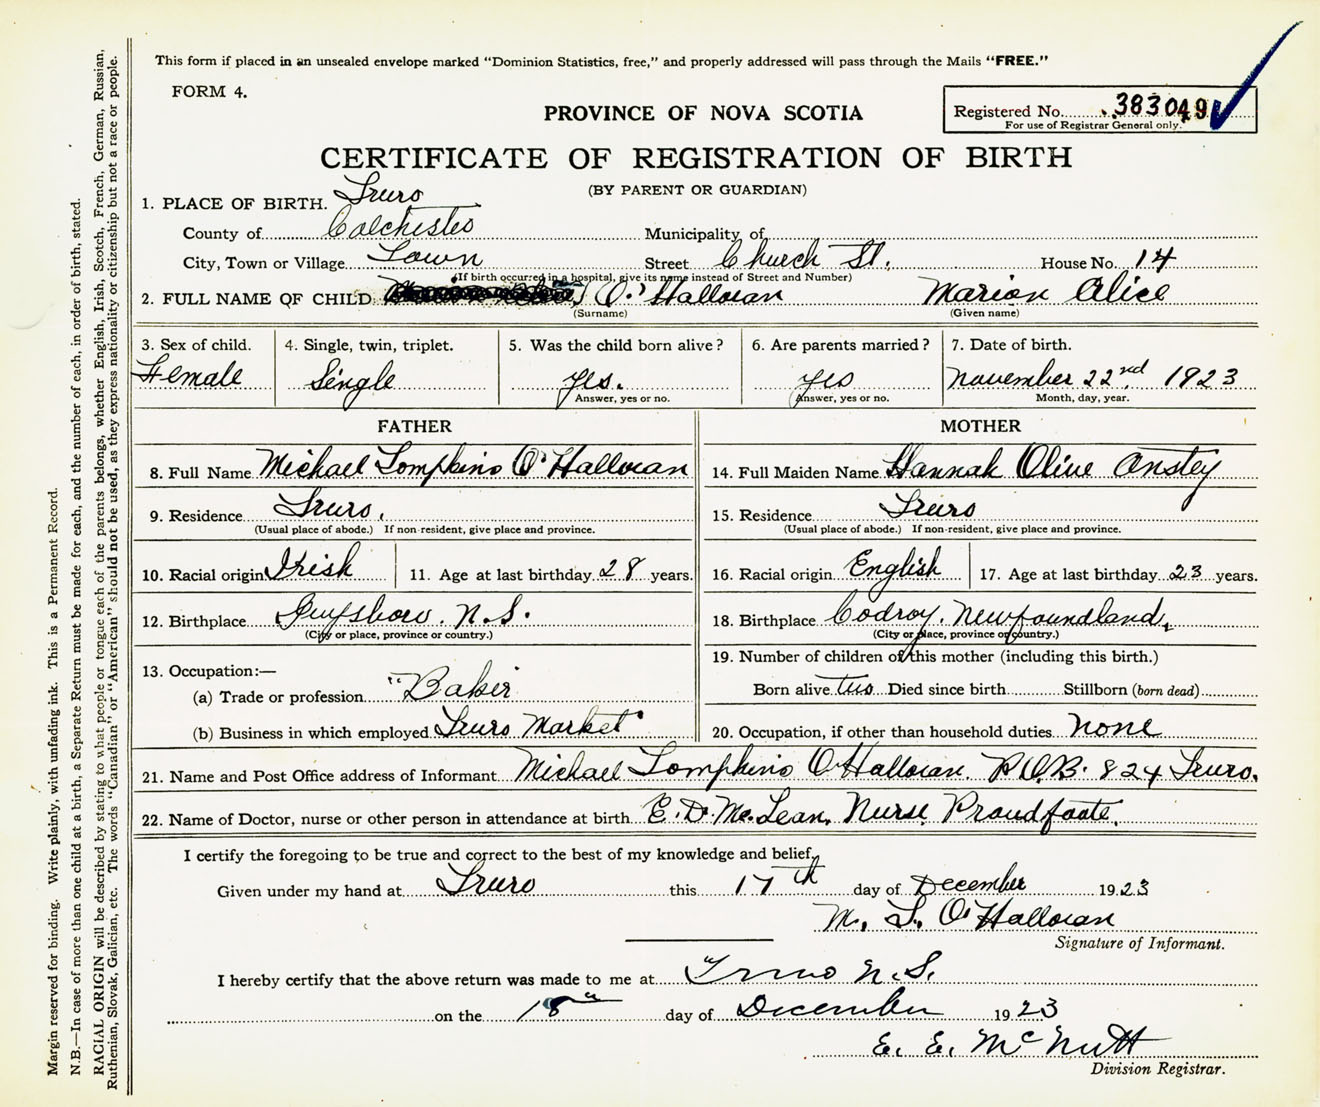 This form if placed in an unsealed envelope marked “Dominion Statistics, free,” and properly addressed will pass through the Mails “FREE.”
FORM 4.
PROVINCE OF NOVA SCOTIA
Registered No. 383049
For use of Registrar General only.
CERTIFICATE OF REGISTRATION OF BIRTH
(BY PARENT OR GUARDIAN)
1. PLACE OF BIRTH. Truro
County of Colchester Municipality of
City, Town or Village Town Street Church St. House No. 14
(If birth occurred in a hospital, give its name instead of Street and Number)
2. FULL NAME OF CHILD O'Halloran Marion Alice
(Surname) (Given name)
3. Sex of child. 4. Single, twin, triplet. 5. Was the child born alive? 6. Are parents married? 7. Date of birth.
Female Single Yes. Yes November 22nd 1923
Answer, yes or no. Answer, yes or no. Month, day, year.
FATHER
8. Full Name Michael Tompkins O'Halloran
9. Residence Truro.
(Usual place of abode.) If non-resident, give place and province.
10. Racial origin Irish 11. Age at last birthday 28 years.
12. Birthplace Guysboro. N.S.
(City or place, province or country.)
13. Occupation:—
(a) Trade or profession Baker
(b) Business in which employed Truro Market
MOTHER
14. Full Maiden Name Hannah Olive Anstey
15. Residence Truro
(Usual place of abode.) If non-resident, give place and province.
16. Racial origin English 17. Age at last birthday 23 years.
18. Birthplace Codroy. Newfoundland.
(City or place, province or country.)
19. Number of children of this mother (including this birth.)
Born alive two Died since birth Stillborn (born dead)
20. Occupation, if other than household duties none
21. Name and Post Office address of Informant Michael Tompkins O'Halloran. P.O.B. 824 Truro.
22. Name of Doctor, nurse or other person in attendance at birth E. D. McLean, Nurse Proudfoote.
I certify the foregoing to be true and correct to the best of my knowledge and belief,
Given under my hand at Truro this 17th day of December 1923
M. T. O'Halloran
Signature of Informant.
I hereby certify that the above return was made to me at Truro N.S.
on the 18th day of December 1923
E. E. McNutt
Division Registrar.
Margin reserved for binding. Write plainly, with unfading ink. This is a Permanent Record.
N.B.—In case of more than one child at a birth, a Separate Return must be made for each, and the number of each, in order of birth, stated.
RACIAL ORIGIN will be described by stating to what people or tongue each of the parents belongs, whether English, Irish, Scotch, French, German, Russian,
Ruthenian, Slovak, Galician, etc. The words “Canadian” or “American” should not be used, as they express nationality or citizenship but not a race or people.